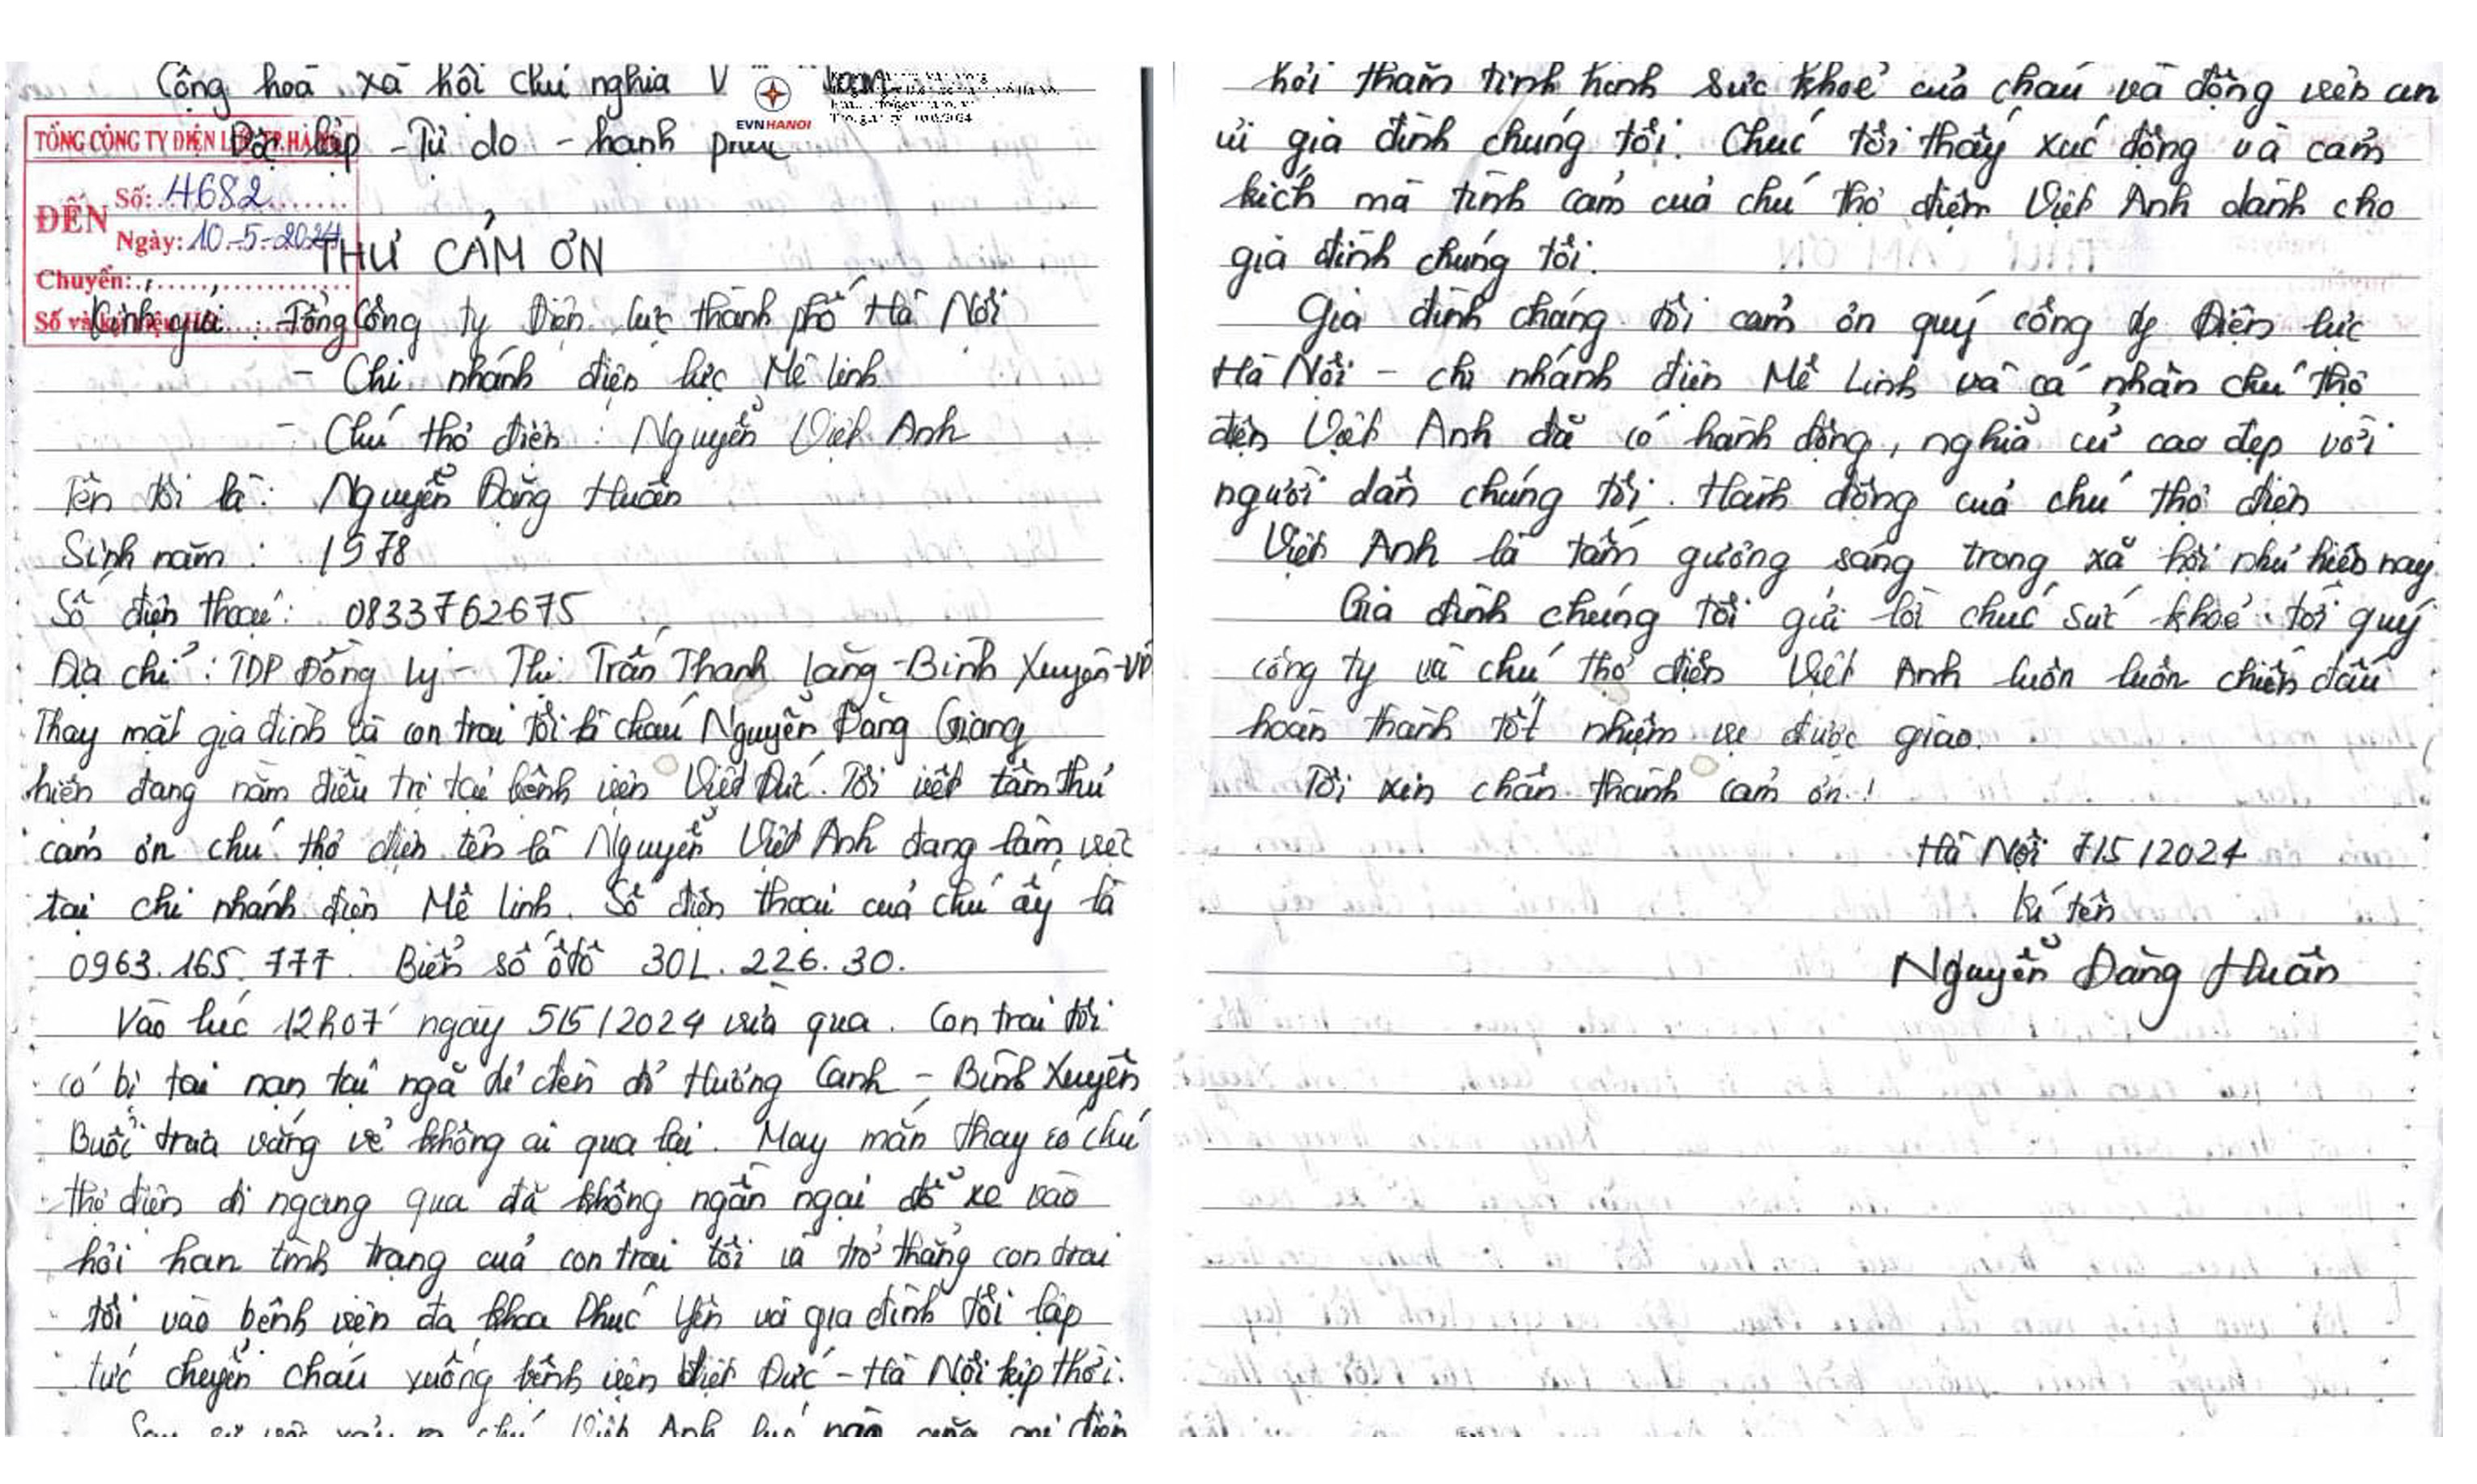 Cộng hoà xã hội chủ nghĩa V
EVNHANOI
TỔNG CÔNG TY ĐIỆN LỰC TP.HÀ NỘI
Độc lập - Tự do - hạnh phúc
Số: 4682
ĐẾN
Ngày: 10-5-2024
THƯ CẢM ƠN
Chuyển:
Kính gửi: Tổng Công ty Điện lực thành phố Hà Nội
Số và ký hiệu HS
- Chi nhánh điện lực Mê linh
- Chú thợ điện: Nguyễn Việt Anh
Tên tôi là: Nguyễn Đăng Huấn
Sinh năm: 1978
Số điện thoại: 0833762675
Địa chỉ: TDP Đồng Lý - Thị Trấn Thanh Lãng - Bình Xuyên - VP
Thay mặt gia đình và con trai tôi là cháu Nguyễn Đăng Giang
hiện đang nằm điều trị tại bệnh viện Việt Đức. Tôi viết tâm thư
cảm ơn chú thợ điện tên là Nguyễn Việt Anh đang làm việc
tại chi nhánh điện Mê linh. Số điện thoại của chú ấy là
0963.165.777. Biển số ôtô 30L.226.30.
Vào lúc 12h07' ngày 5/5/2024 vừa qua. Con trai tôi
có bị tai nạn tại ngã tư đèn đỏ Hương Canh - Bình Xuyên
Buổi trưa vắng vẻ không ai qua lại. May mắn thay có chú
thợ điện đi ngang qua đã không ngần ngại đỗ xe vào
hỏi han tình trạng của con trai tôi và trở thẳng con trai
tôi vào bệnh viện đa khoa Phúc Yên và gia đình tôi lập
tức chuyển cháu xuống bệnh viện Việt Đức - Hà Nội kịp thời.
Sau sự việc xảy ra chú Việt Anh lúc nào cũng gọi điện
hỏi thăm tình hình sức khoẻ của cháu và động viên an
ủi gia đình chúng tôi. Chúc tôi thấy xúc động và cảm
kích mà tình cảm của chú thợ điện Việt Anh dành cho
gia đình chúng tôi.
Gia đình chúng tôi cảm ơn quý công ty Điện lực
Hà Nội - chi nhánh điện Mê Linh và cá nhân chú thợ
điện Việt Anh đã có hành động, nghĩa cử cao đẹp với
người dân chúng tôi. Hành động của chú thợ điện
Việt Anh là tấm gương sáng trong xã hội như hiện nay.
Gia đình chúng tôi gửi lời chúc sức khoẻ tới quý
công ty và chú thợ điện Việt Anh luôn luôn chiến đấu
hoàn thành tốt nhiệm vụ được giao.
Tôi xin chân thành cảm ơn!
Hà Nội 7/5/2024
Kí tên
Nguyễn Đăng Huấn